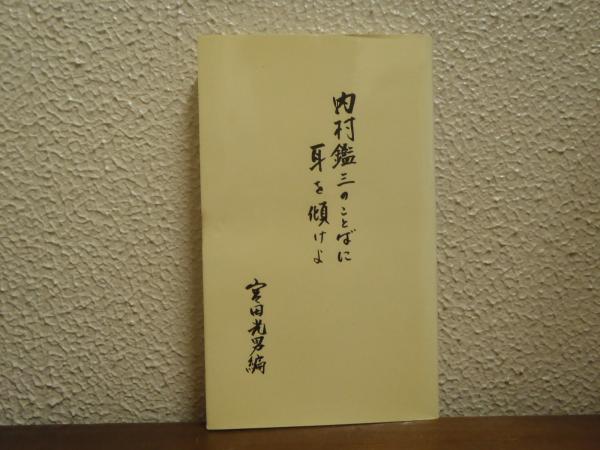 内村鑑三のことばに
耳を傾けよ
宮田光男編